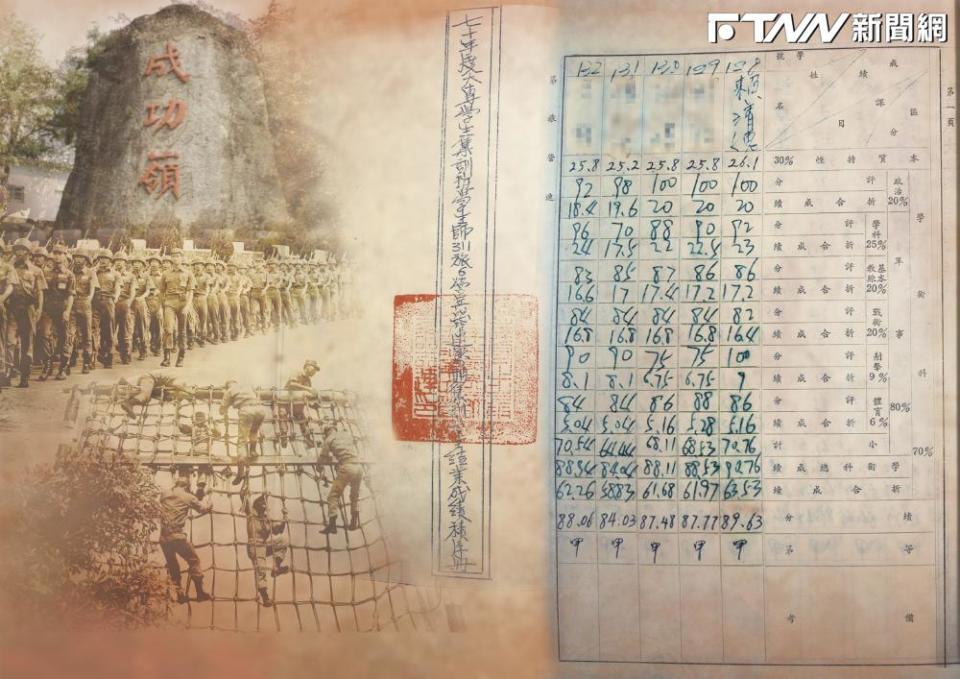 FTNN 新聞網
成功嶺
七十年度大專學生集訓班學生師311旅
結業成績
第一頁
第 旅 營 連
學號
姓名
成績
課目
區分
132 131 130 129 128
賴清德
本質特性 30%
25.8 25.2 25.8 25.8 26.1
學術科 70%
軍事 80%
政治 20%
評分
92 98 100 100 100
折合成績
18.4 19.6 20 20 20
學科 25%
評分
96 70 88 90 92
折合成績
24 17.5 22 22.5 23
基本教練 20%
評分
83 85 87 86 86
折合成績
16.6 17 17.4 17.2 17.2
戰術 20%
評分
84 84 84 84 82
折合成績
16.8 16.8 16.8 16.8 16.4
射擊 9%
評分
90 90 75 75 100
折合成績
8.1 8.1 6.75 6.75 9
體育 6%
評分
84 84 86 88 86
折合成績
5.04 5.04 5.16 5.28 5.16
小計
70.54 64.44 68.11 68.53 70.76
學術科總成績
88.94 84.04 88.11 88.53 90.76
折合成績
62.26 58.83 61.68 61.97 63.53
績分
88.06 84.03 87.48 87.77 89.63
等第
甲 甲 甲 甲 甲
備考